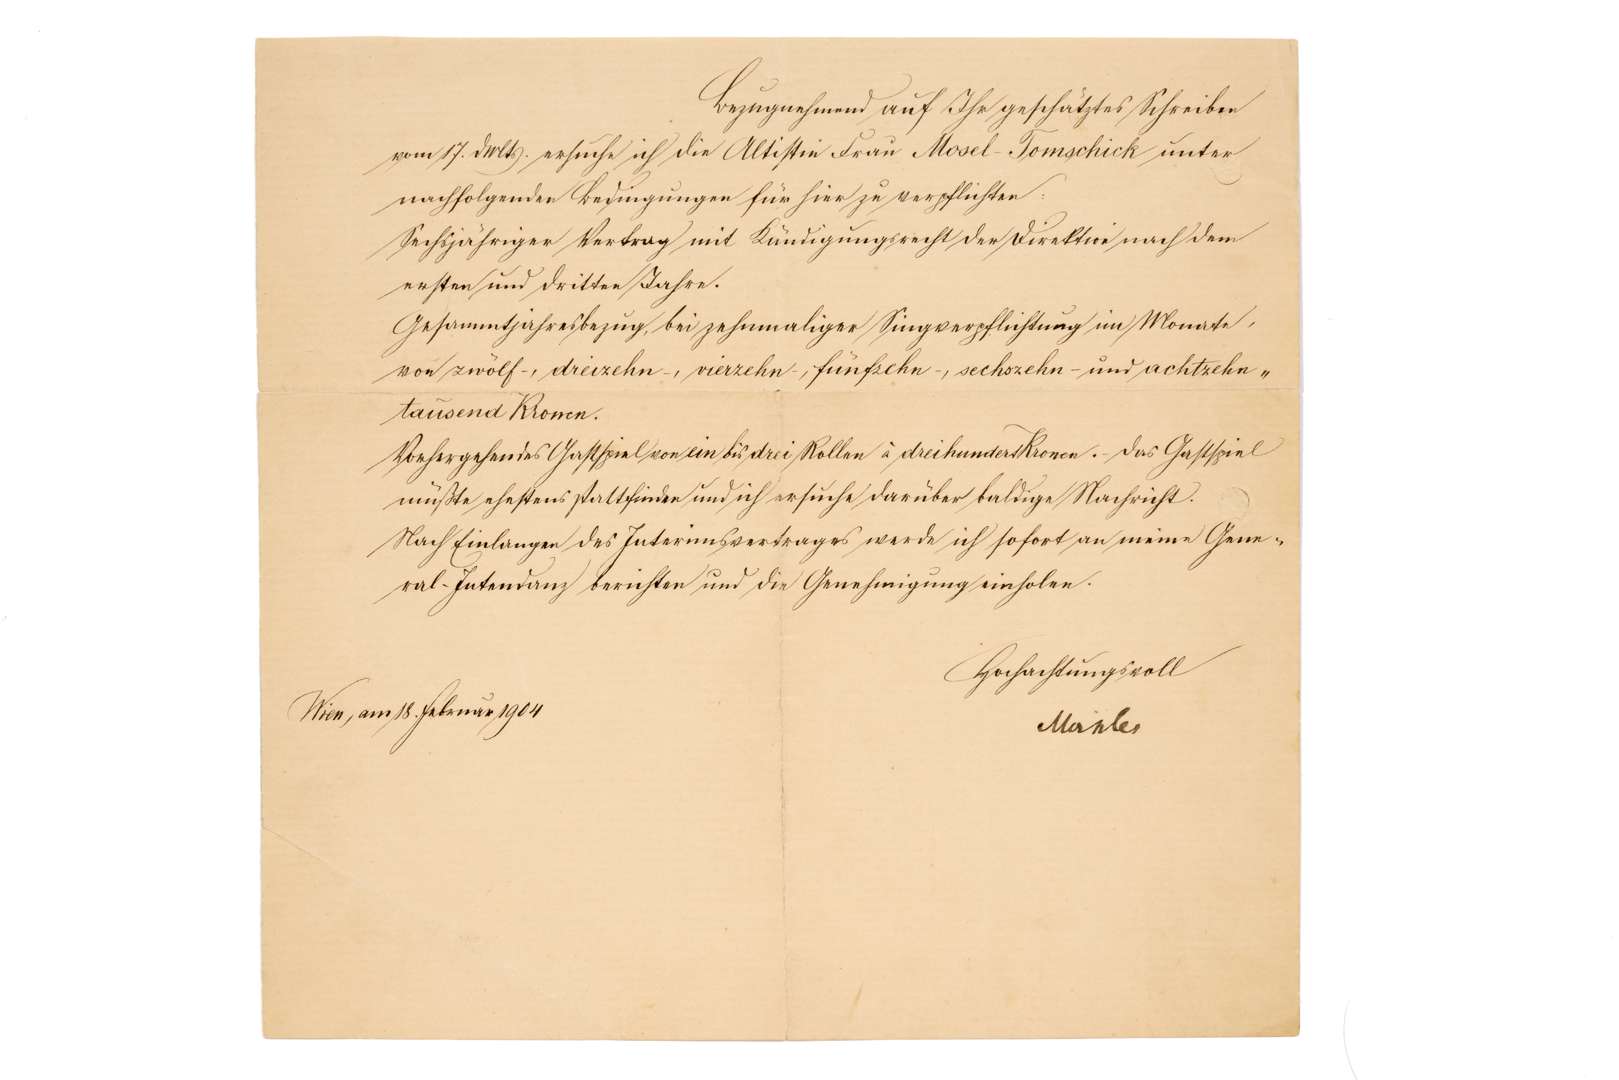 Bezugnehmend auf Ihr geschätztes Schreiben
vom 17. dMts. ersuche ich die Altistin Frau Mosel-Tomschick unter
nachfolgenden Bedingungen für hier zu verpflichten:
Sechsjähriger Vertrag mit Kündigungsrecht der Direktion nach dem
ersten und dritten Jahre.
Gesammtjahresbezug, bei zehnmaliger Singverpflichtung im Monate,
von zwölf-, dreizehn-, vierzehn-, fünfzehn-, sechszehn- und achtzehn„
tausend Kronen.
Vorhergehendes Gastspiel von ein bis drei Rollen à dreihundert Kronen. – Das Gastspiel
müßte ehestens stattfinden und ich ersuche darüber baldige Nachricht.
Nach Einlangen des Interimsvertrages werde ich sofort an meine Gene„
ral-Intendanz berichten und die Genehmigung einholen.
Hochachtungsvoll
Wien, am 18. Februar 1904
Mahler